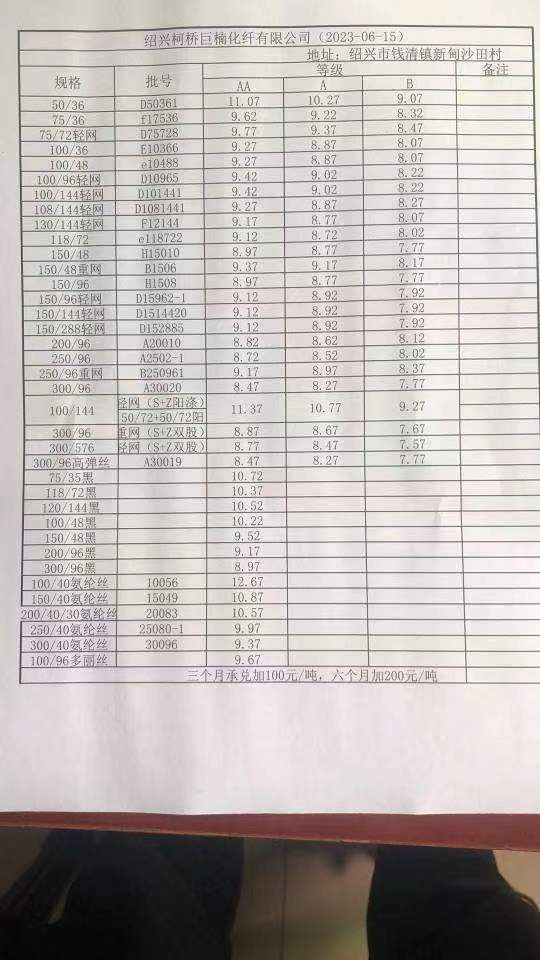 绍兴柯桥巨楠化纤有限公司（2023-06-15）
地址：绍兴市钱清镇新甸沙田村
规格 批号 等级 备注
AA A B
50/36 D50361 11.07 10.27 9.07
75/36 f17536 9.62 9.22 8.32
75/72轻网 D75728 9.77 9.37 8.47
100/36 E10366 9.27 8.87 8.07
100/48 e10488 9.27 8.87 8.07
100/96轻网 D10965 9.42 9.02 8.22
100/144轻网 D101441 9.42 9.02 8.22
108/144轻网 D1081441 9.27 8.87 8.27
130/144轻网 F12144 9.17 8.77 8.07
118/72 e118722 9.12 8.72 8.02
150/48 H15010 8.97 8.77 7.77
150/48重网 B1506 9.37 9.17 8.17
150/96 H1508 8.97 8.77 7.77
150/96轻网 D15962-1 9.12 8.92 7.92
150/144轻网 D1514420 9.12 8.92 7.92
150/288轻网 D152885 9.12 8.92 7.92
200/96 A20010 8.82 8.62 8.12
250/96 A2502-1 8.72 8.52 8.02
250/96重网 B250961 9.17 8.97 8.37
300/96 A30020 8.47 8.27 7.77
100/144 轻网（S+Z阳涤） 11.37 10.77 9.27
50/72+50/72阳
300/96 重网（S+Z双股） 8.87 8.67 7.67
300/576 轻网（S+Z双股） 8.77 8.47 7.57
300/96高弹丝 A30019 8.47 8.27 7.77
75/35黑 10.72
118/72黑 10.37
120/144黑 10.52
100/48黑 10.22
150/48黑 9.52
200/96黑 9.17
300/96黑 8.97
100/40氨纶丝 10056 12.67
150/40氨纶丝 15049 10.87
200/40/30氨纶丝 20083 10.57
250/40氨纶丝 25080-1 9.97
300/40氨纶丝 30096 9.37
100/96多丽丝 9.67
三个月承兑加100元/吨，六个月加200元/吨